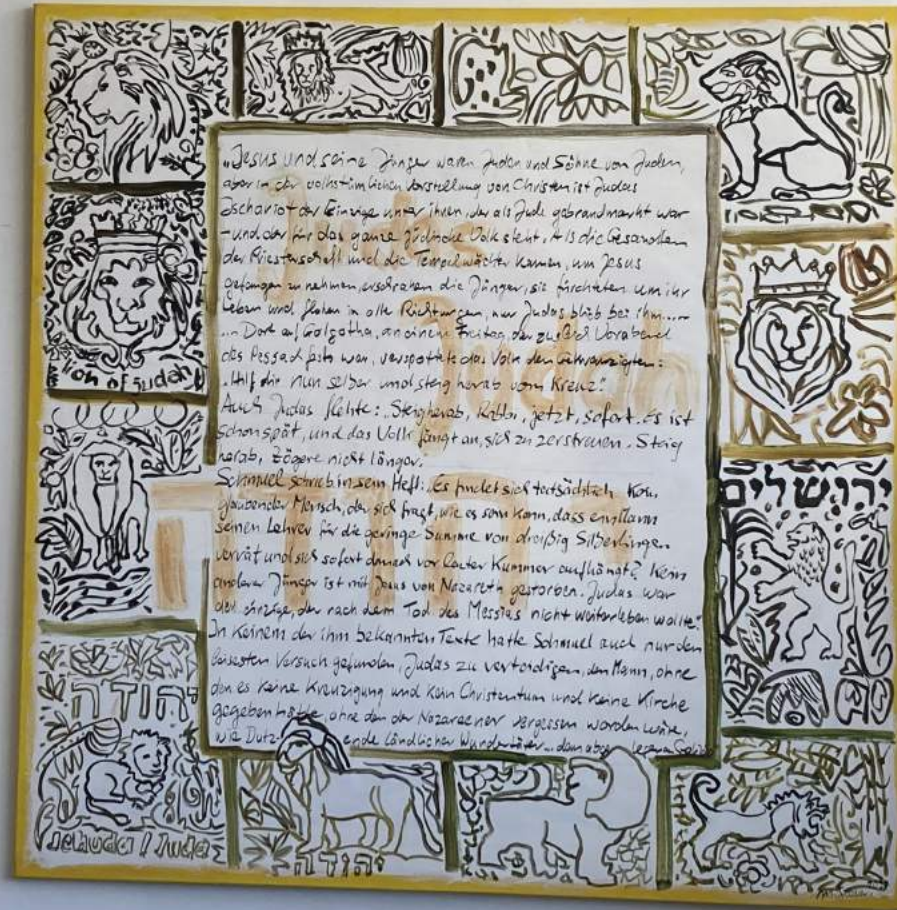 "Jesus und seine Jünger waren Juden und Söhne von Juden,
aber in der volkstümlichen Vorstellung von Christen ist Judas
Ischariot der Einzige unter ihnen, der als Jude gebrandmarkt war
– und der für das ganze jüdische Volk steht. Als die Gesandten
der Priesterschaft und die Tempelwächter kamen, um Jesus
gefangen zu nehmen, erschraken die Jünger, sie fürchteten um ihr
Leben und flohen in alle Richtungen, nur Judas blieb bei ihm.....
... Dort auf Golgatha, an einem Freitag, der zugleich Vorabend
des Pessachfests war, verspottete das Volk den Gekreuzigten:
"Hilf dir nun selber und steig herab vom Kreuz."
Auch Judas flehte: "Steig herab, Rabbi, jetzt, sofort. Es ist
schon spät, und das Volk fängt an, sich zu zerstreuen. Steig
herab, zögere nicht länger.
Schmuel schrieb in sein Heft: "Es findet sich tatsächlich kein
glaubender Mensch, der sich fragt, wie es sein kann, dass ein Mann
seinen Lehrer für die geringe Summe von dreißig Silberlingen
verrät und sich sofort danach vor lauter Kummer aufhängt? Kein
anderer Jünger ist mit Jesus von Nazareth gestorben. Judas war
der einzige, der nach dem Tod des Messias nicht weiterleben wollte."
In keinem der ihm bekannten Texte hatte Schmuel auch nur den
leisesten Versuch gefunden, Judas zu verteidigen, den Mann, ohne
den es keine Kreuzigung und kein Christentum und keine Kirche
gegeben hätte, ohne den der Nazarener vergessen worden wäre,
wie Dutzende ländlicher Wundertäter
Judas
Juden
יהודה
Lion of Judah
ירושלים
יהודה
Jehuda / Juda
יהודה